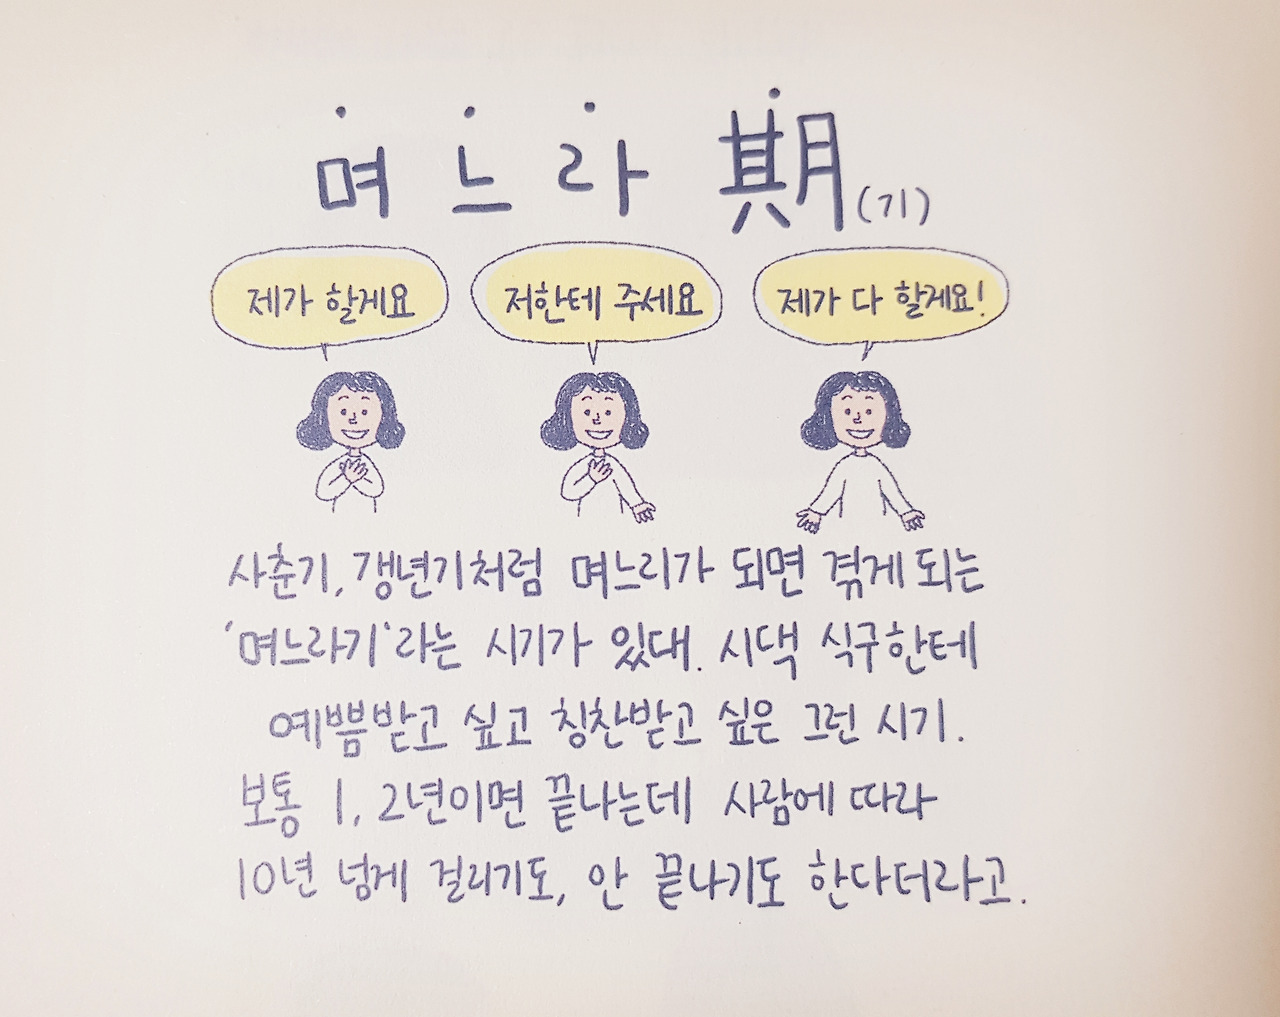 며느라 期(기)
제가 할게요
저한테 주세요
제가 다 할게요!
사춘기, 갱년기처럼 며느리가 되면 겪게 되는
'며느라기'라는 시기가 있대. 시댁 식구한테
예쁨받고 싶고 칭찬받고 싶은 그런 시기.
보통 1, 2년이면 끝나는데 사람에 따라
10년 넘게 걸리기도, 안 끝나기도 한다더라고.